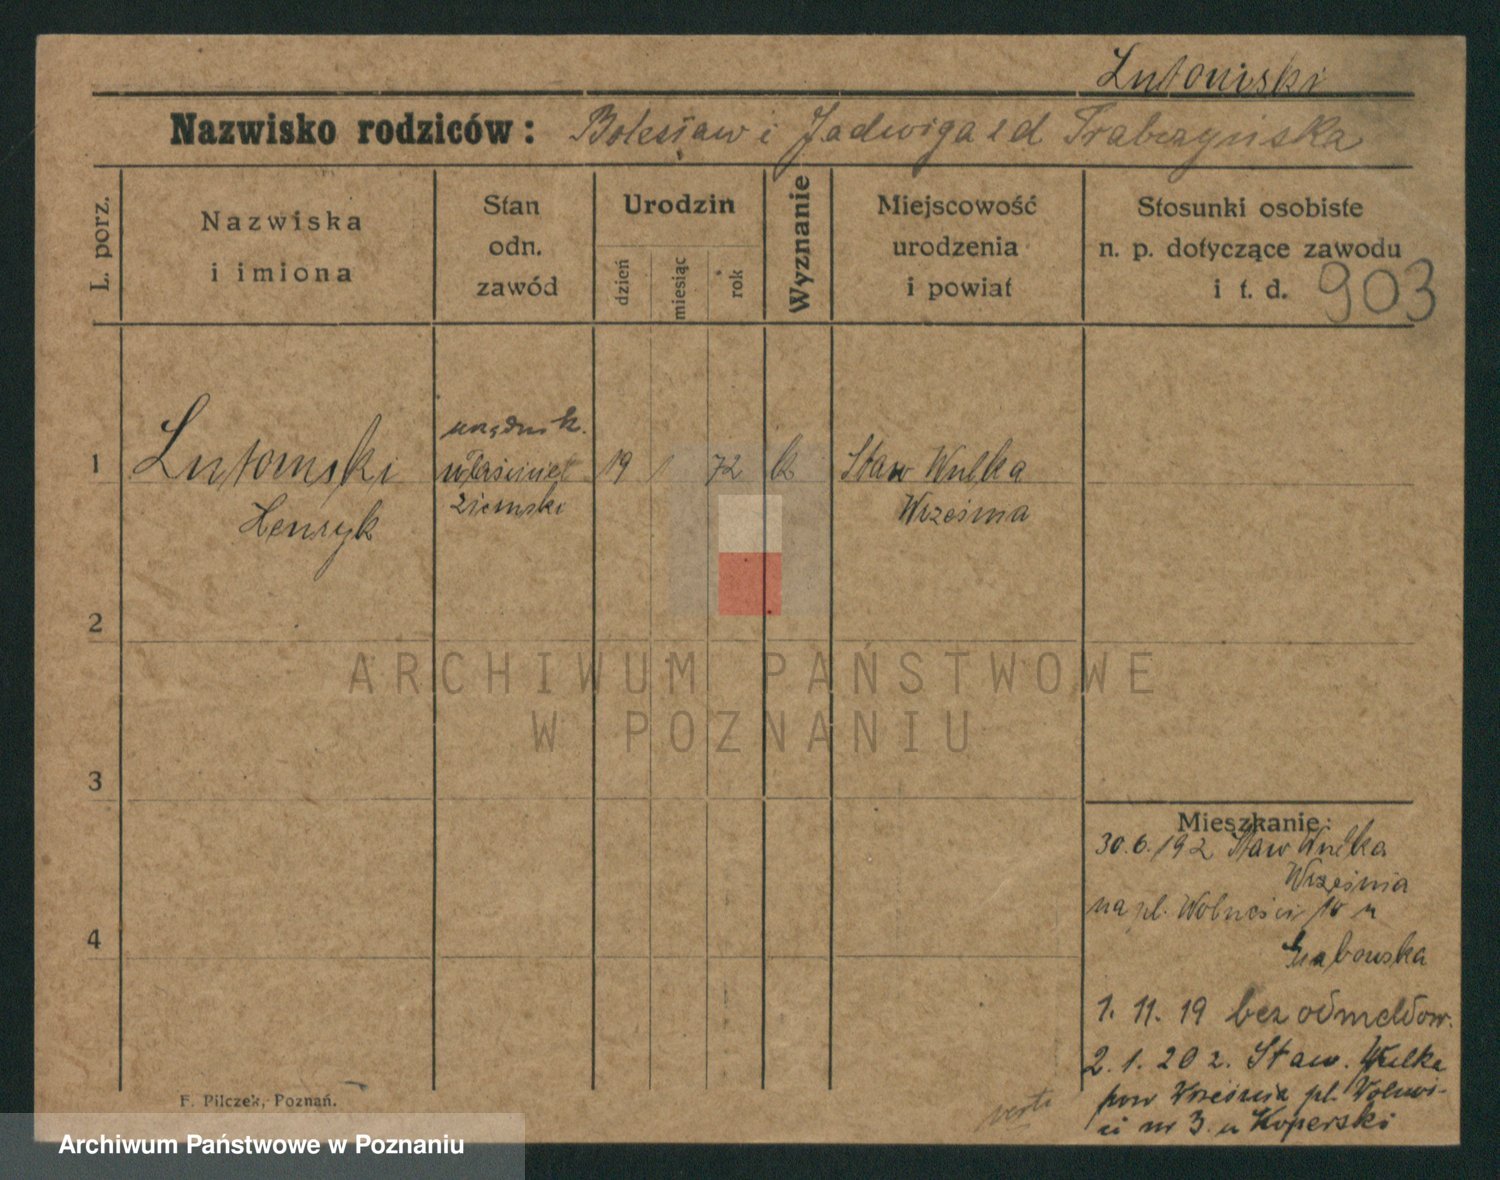 Lutomski
Nazwisko rodziców: Bolesław i Jadwiga z d Trabczyńska
L. porz.
Nazwiska
i imiona
Stan
odn.
zawód
Urodzin
dzień
miesiąc
rok
Wyznanie
Miejscowość
urodzenia
i powiat
Stosunki osobiste
n. p. dotyczące zawodu
i t. d.
903
1
Lutomski
Henryk
urzędnik.
właściciel
ziemski
19 1 72 k
Staw Wulka
Września
2
3
4
ARCHIWUM PAŃSTWOWE
W POZNANIU
Mieszkanie:
30.6.19 z Staw Wulka
Września
na pl. Wolności 10 u
Grabowska
1. 11. 19 bez odmeldow.
2. 1. 20 z. Staw. Wulka
pow Września pl. Wolnoś-
ci nr 3. u Koperski
verte
F. Pilczek, Poznań.
Archiwum Państwowe w Poznaniu